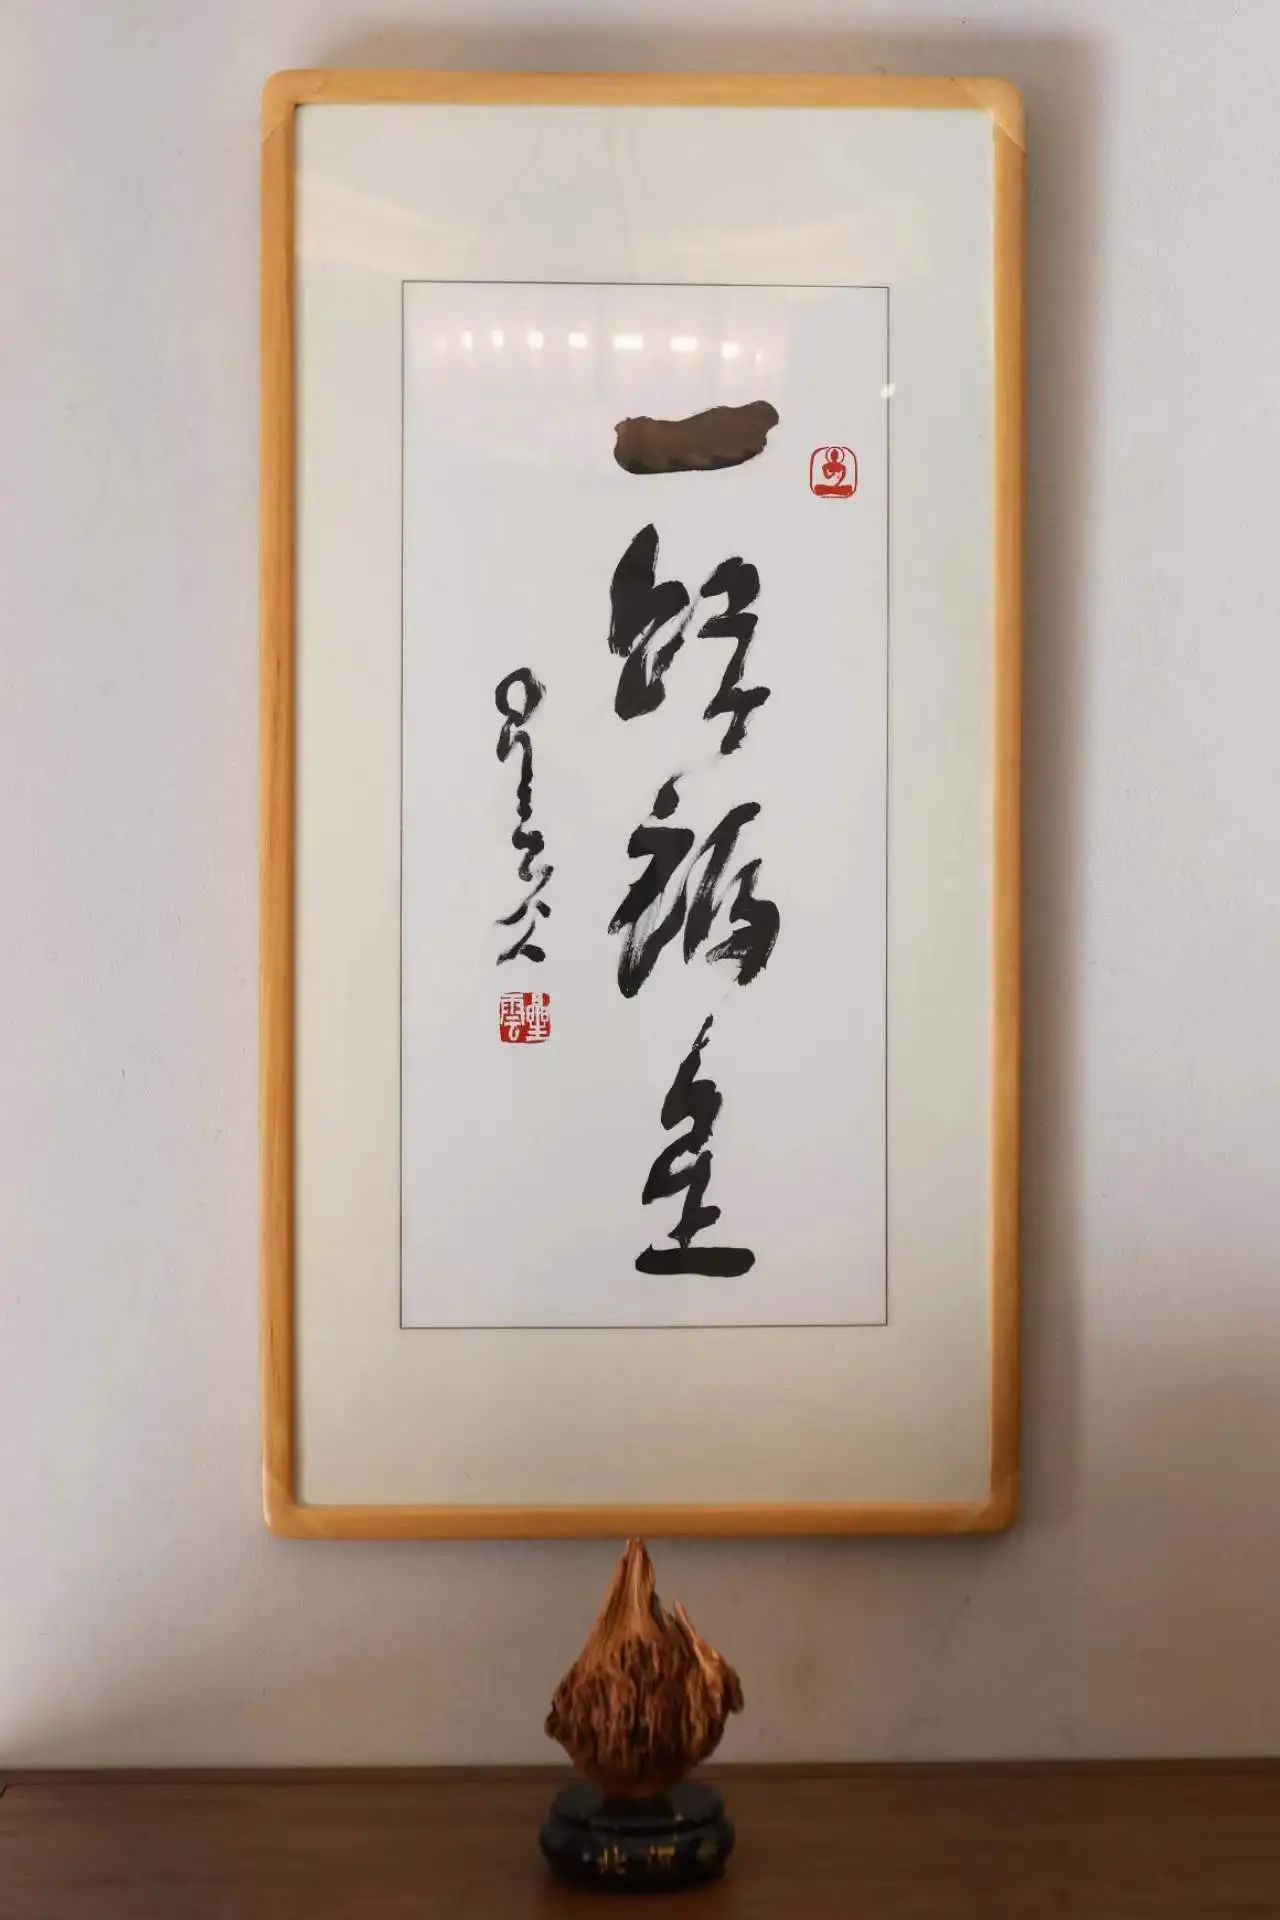 一路福星
星云
星雲